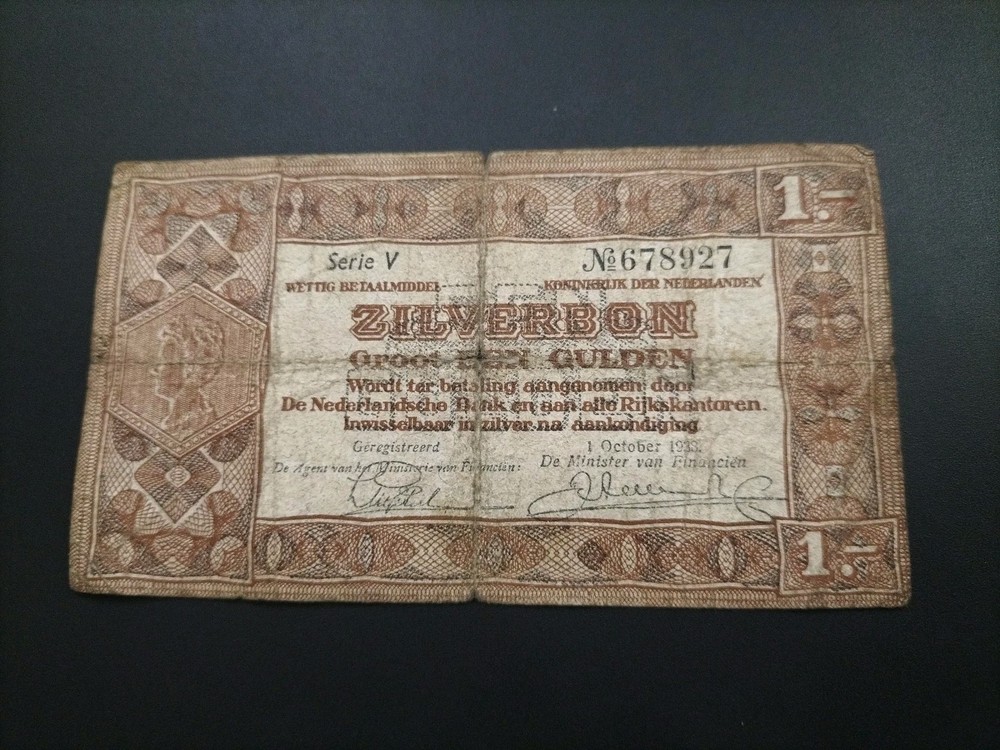 1:-
Serie V
№ 678927
WETTIG BETAALMIDDEL
KONINKRIJK DER NEDERLANDEN
ZILVERBON
Groot EEN GULDEN
Wordt ter betaling aangenomen door
De Nederlandsche Bank en aan alle Rijkskantoren.
Inwisselbaar in zilver na aankondiging
Geregistreerd
1 October 1938.
De Agent van het Ministerie van Financiën:
De Minister van Financiën
1:-